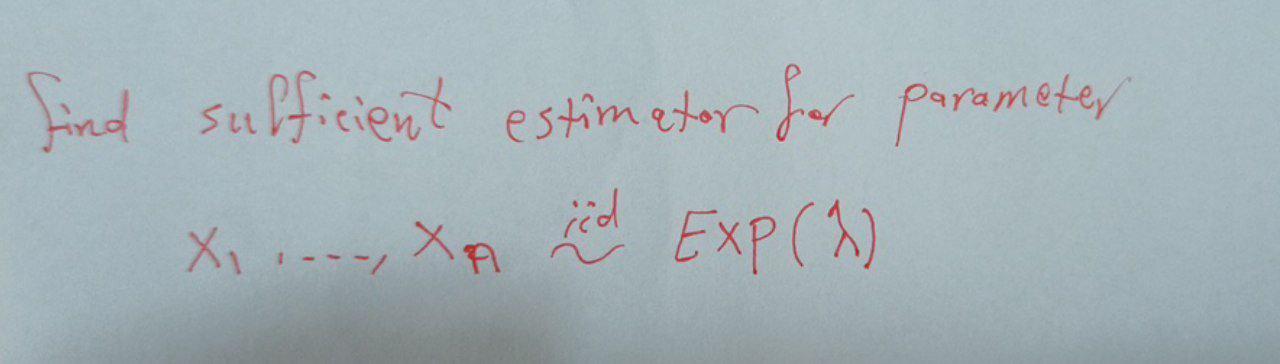 find sufficient estimator for parameter
X₁, ...., Xₙ iid ~ Exp(λ)